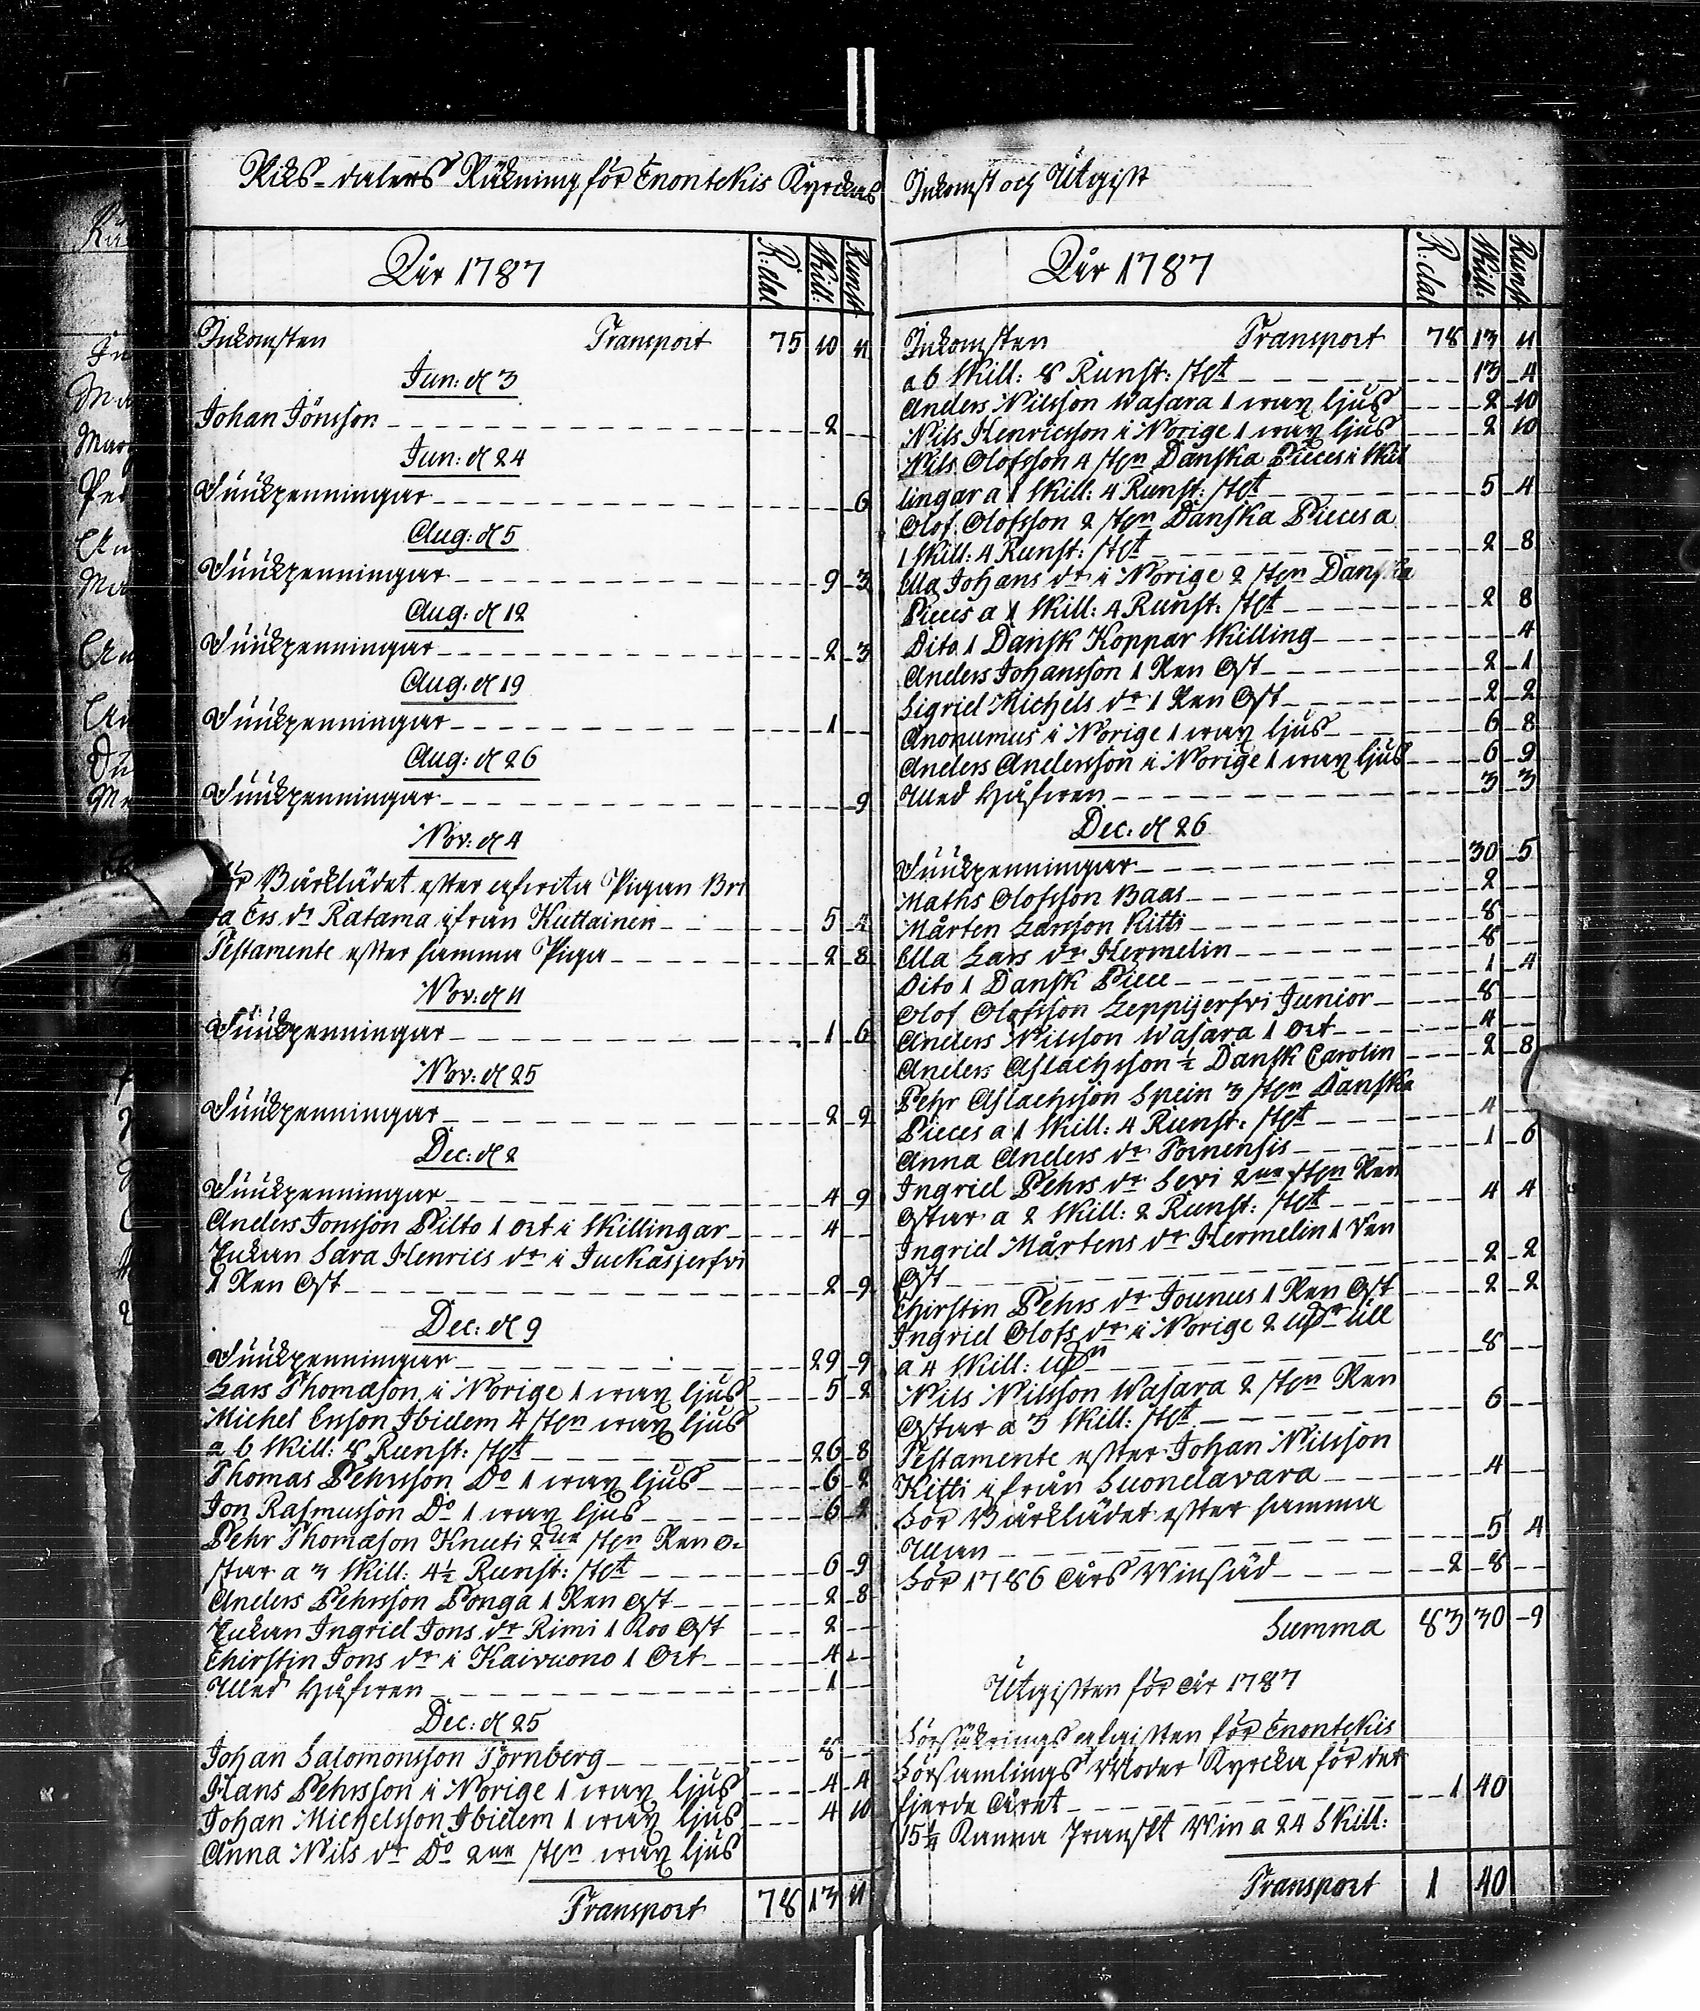 Riks-dalers Räkning för Enontekis Kyrckas Inkomst och Utgift
Åhr 1787 R:dal Skill: Runst.
Inkomsten Transport 75 10 11
Jun: d 3
Johan Jönsson 2
Jun: d 24
Siukpenningar 6
Aug: d 5
Siukpenningar 9 3
Aug: d 12
Siukpenningar 2 3
Aug: d 19
Siukpenningar 1
Aug: d 26
Siukpenningar 9
Nov: d 4
för Bårklädet efter afledna Pigan Bri
ta Ers dr Ratama ifrån Kuttainen 5 4
Testamente efter samma Piga 2 8
Nov: d 11
Siukpenningar 1 6
Nov: d 25
Siukpenningar 2 9
Dec: d 2
Siukpenningar 4 9
Anders Jonsson Pilto 1 ort i Skillingar 4
Enkan Sara Henrics dr i Juckasjerfvi
1 Ren Ost 2 9
Dec: d 9
Siukpenningar 29 9
Lars Thomasson i Norige 1 wax ljus 5 2
Michel Ersson Ibidem 4 stn wax ljus
a 6 Skill: 8 Runst: st 26 8
Thomas Pehrsson Do 1 wax ljus 6 2
Jon Rasmusson Do 1 wax ljus 6 2
Pehr Thomasson Knuti 2ne stn Ren o-
star a 3 Skill: 4½ Runst: st 6 9
Anders Pehrsson Ponga 1 Ren Ost 2 8
Enkan Ingried Jons dr Rimi 1 Koo Ost 2
Chirstin Jons dr i Kaivuono 1 Ort 4
Med Håfwen 1
Dec: d 25
Johan Salomonsson Törnberg 8
Hans Pehrsson i Norige 1 wax ljus 4 4
Johan Michelsson Ibidem 1 wax ljus 4 10
Anna Nils dr Do 2ne stn wax ljus
Transport 78 13 11
Åhr 1787 R:dal Skill: Runst.
Inkomsten Transport 78 13 11
a 6 Skill: 8 Runst: st 13 4
Anders Nilsson Wasara 1 wax ljus 2 10
Nils Henricsson i Norige 1 wax ljus 2 10
Nils Olofsson 4 stn Danska Pieces i Skil
lingar a 1 Skill: 4 Runst: st 5 4
Olof Olofsson 2 stn Danska Pieces a
1 Skill: 4 Runst: st 2 8
Ella Johans dr i Norige 2 stn Danska
Pieces a 1 Skill: 4 Runst: st 2 8
Dito 1 Dansk Koppar Skilling 4
Anders Johansson 1 Ren Ost 2 1
Sigried Michels dr 1 Ren Ost 2 2
Anonumus i Norige 1 wax ljus 6 8
Anders Andersson i Norige 1 wax ljus 6 9
Med Håfwen 3 3
Dec: d 26
Siukpenningar 30 5
Maths Olofsson Baas 2
Mårten Larsson Kitti 8
Ella Lars dr Hermelin 8
Dito 1 Dansk Piece 1 4
Olof Olofsson Leppijerfvi Junior 8
Anders Nilsson Wasara 1 Ort 4
Anders Aslachsson ½ Dansk Carolin 2 8
Pehr Aslachsson Snein 3 stn Danska
Pieces a 1 Skill: 4 Runst: st 4
Anna Anders dr Tornensis 1 6
Ingried Pehrs dr Servi 2ne stn Ren
Ostar a 2 Skill: 2 Runst: st 4 4
Ingried Mårtens dr Hermelin 1 Ren
Ost 2 2
Chirstin Pehrs dr Jounus 1 Ren Ost 2 2
Ingried Olofs dr i Norige 2 ull
a 4 Skill: 8
Nils Nilsson Wasara 2 stn Ren
Ostar a 3 Skill: st 6
Testamente efter Johan Nilsson
Kitti ifrån Suondavara 4
För Bårklädet efter samma
Man 5 4
För 1786 Års Winsäd 2 8
Summa 83 30 9
Utgiften för år 1787
Försäkrings afgiften för Enontekis
Församlings Moder Kyrcka för det
fjerde Året 1 40
15¼ Kanna Franskt Win a 24 Skill:
Transport 1 40